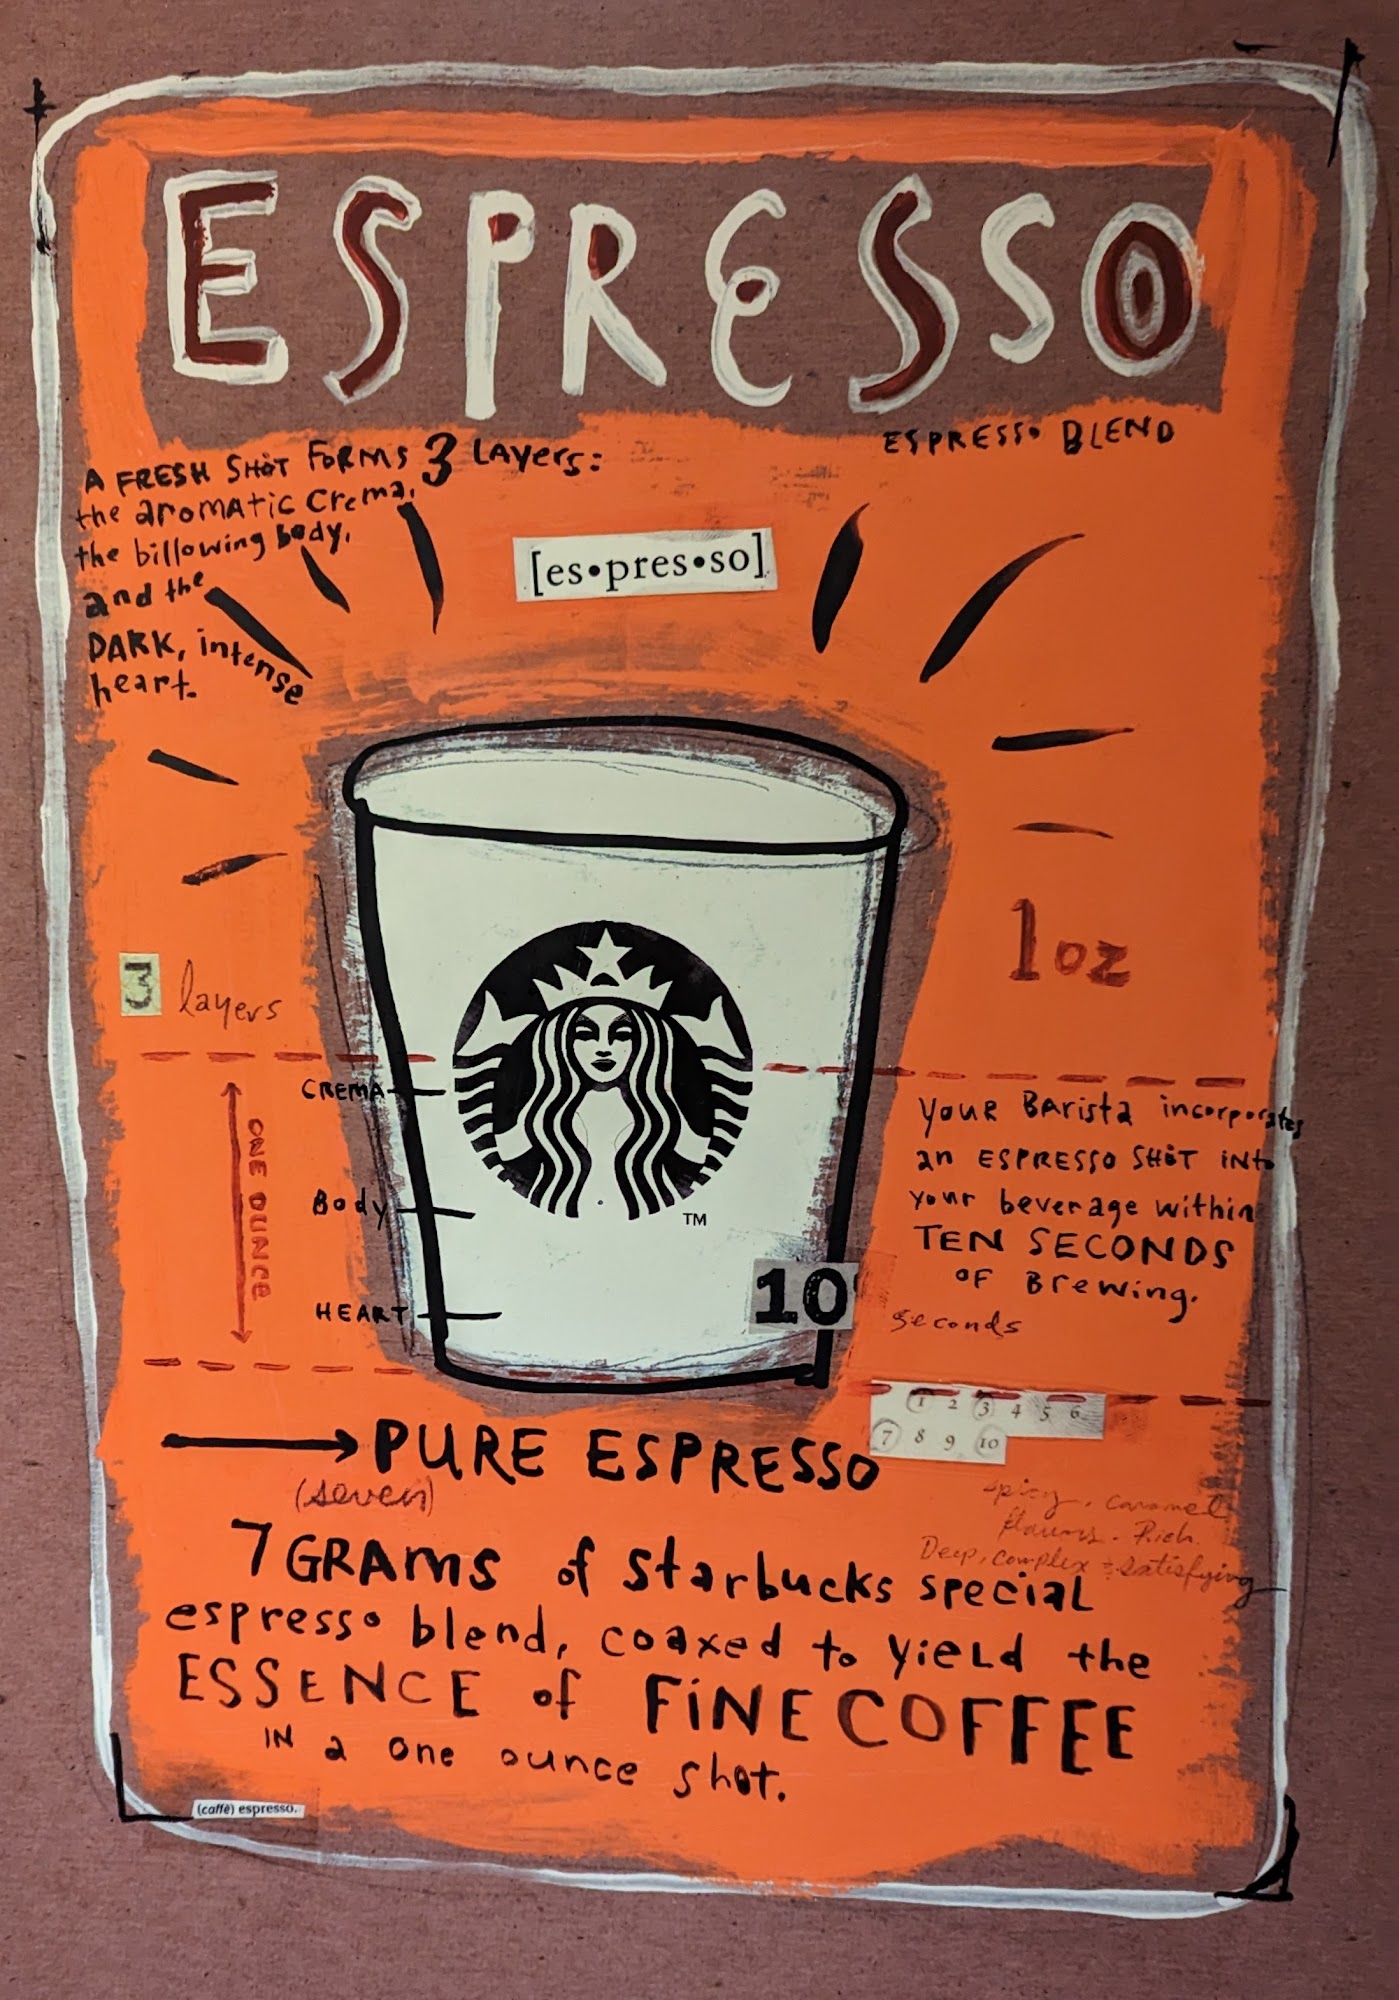 ESPRESSO
ESPRESSO BLEND
A FRESH SHOT FORMS 3 LAYERS:
the aromatic crema,
the billowing body,
and the
DARK, intense
heart.
[es•pres•so]
1oz
3 layers
CREMA
ONE OUNCE
Body
HEART
TM
Your Barista incorporates
an ESPRESSO SHOT into
your beverage within
TEN SECONDS
OF Brewing.
10
seconds
1 2 3 4 5 6
7 8 9 10
PURE ESPRESSO
(seven)
spicy, caramel
flavors. Rich.
Deep, complex + satisfying
7 GRAMS of Starbucks special
espresso blend, coaxed to yield the
ESSENCE of FINE COFFEE
IN a one ounce shot.
(caffè) espresso.